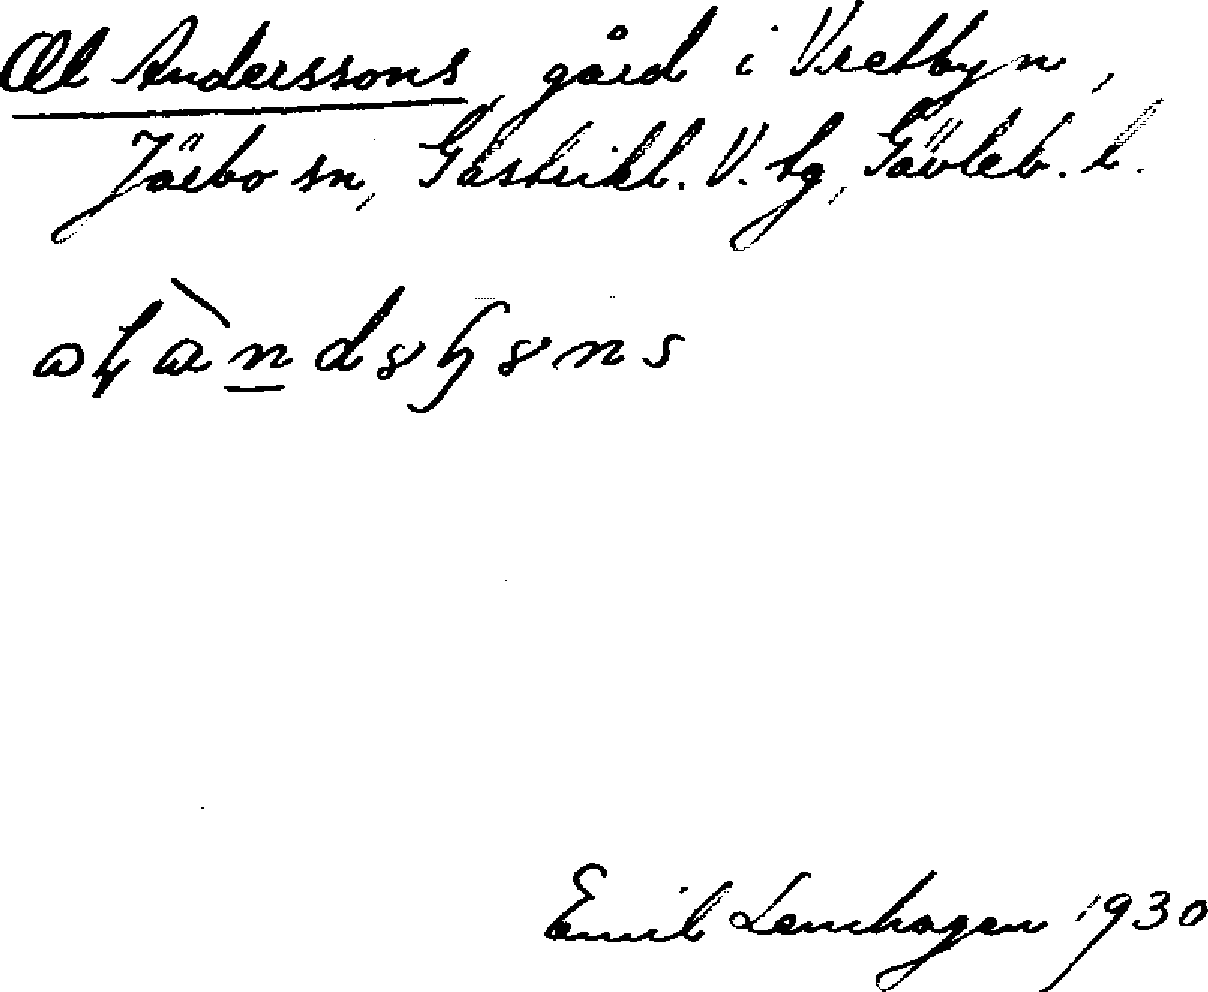 Ol Anderssons, gård i Vretbyn,
Järbo sn, Gästrikl. V. tg, Gävleb. l.
Emil Lenhagen 1930